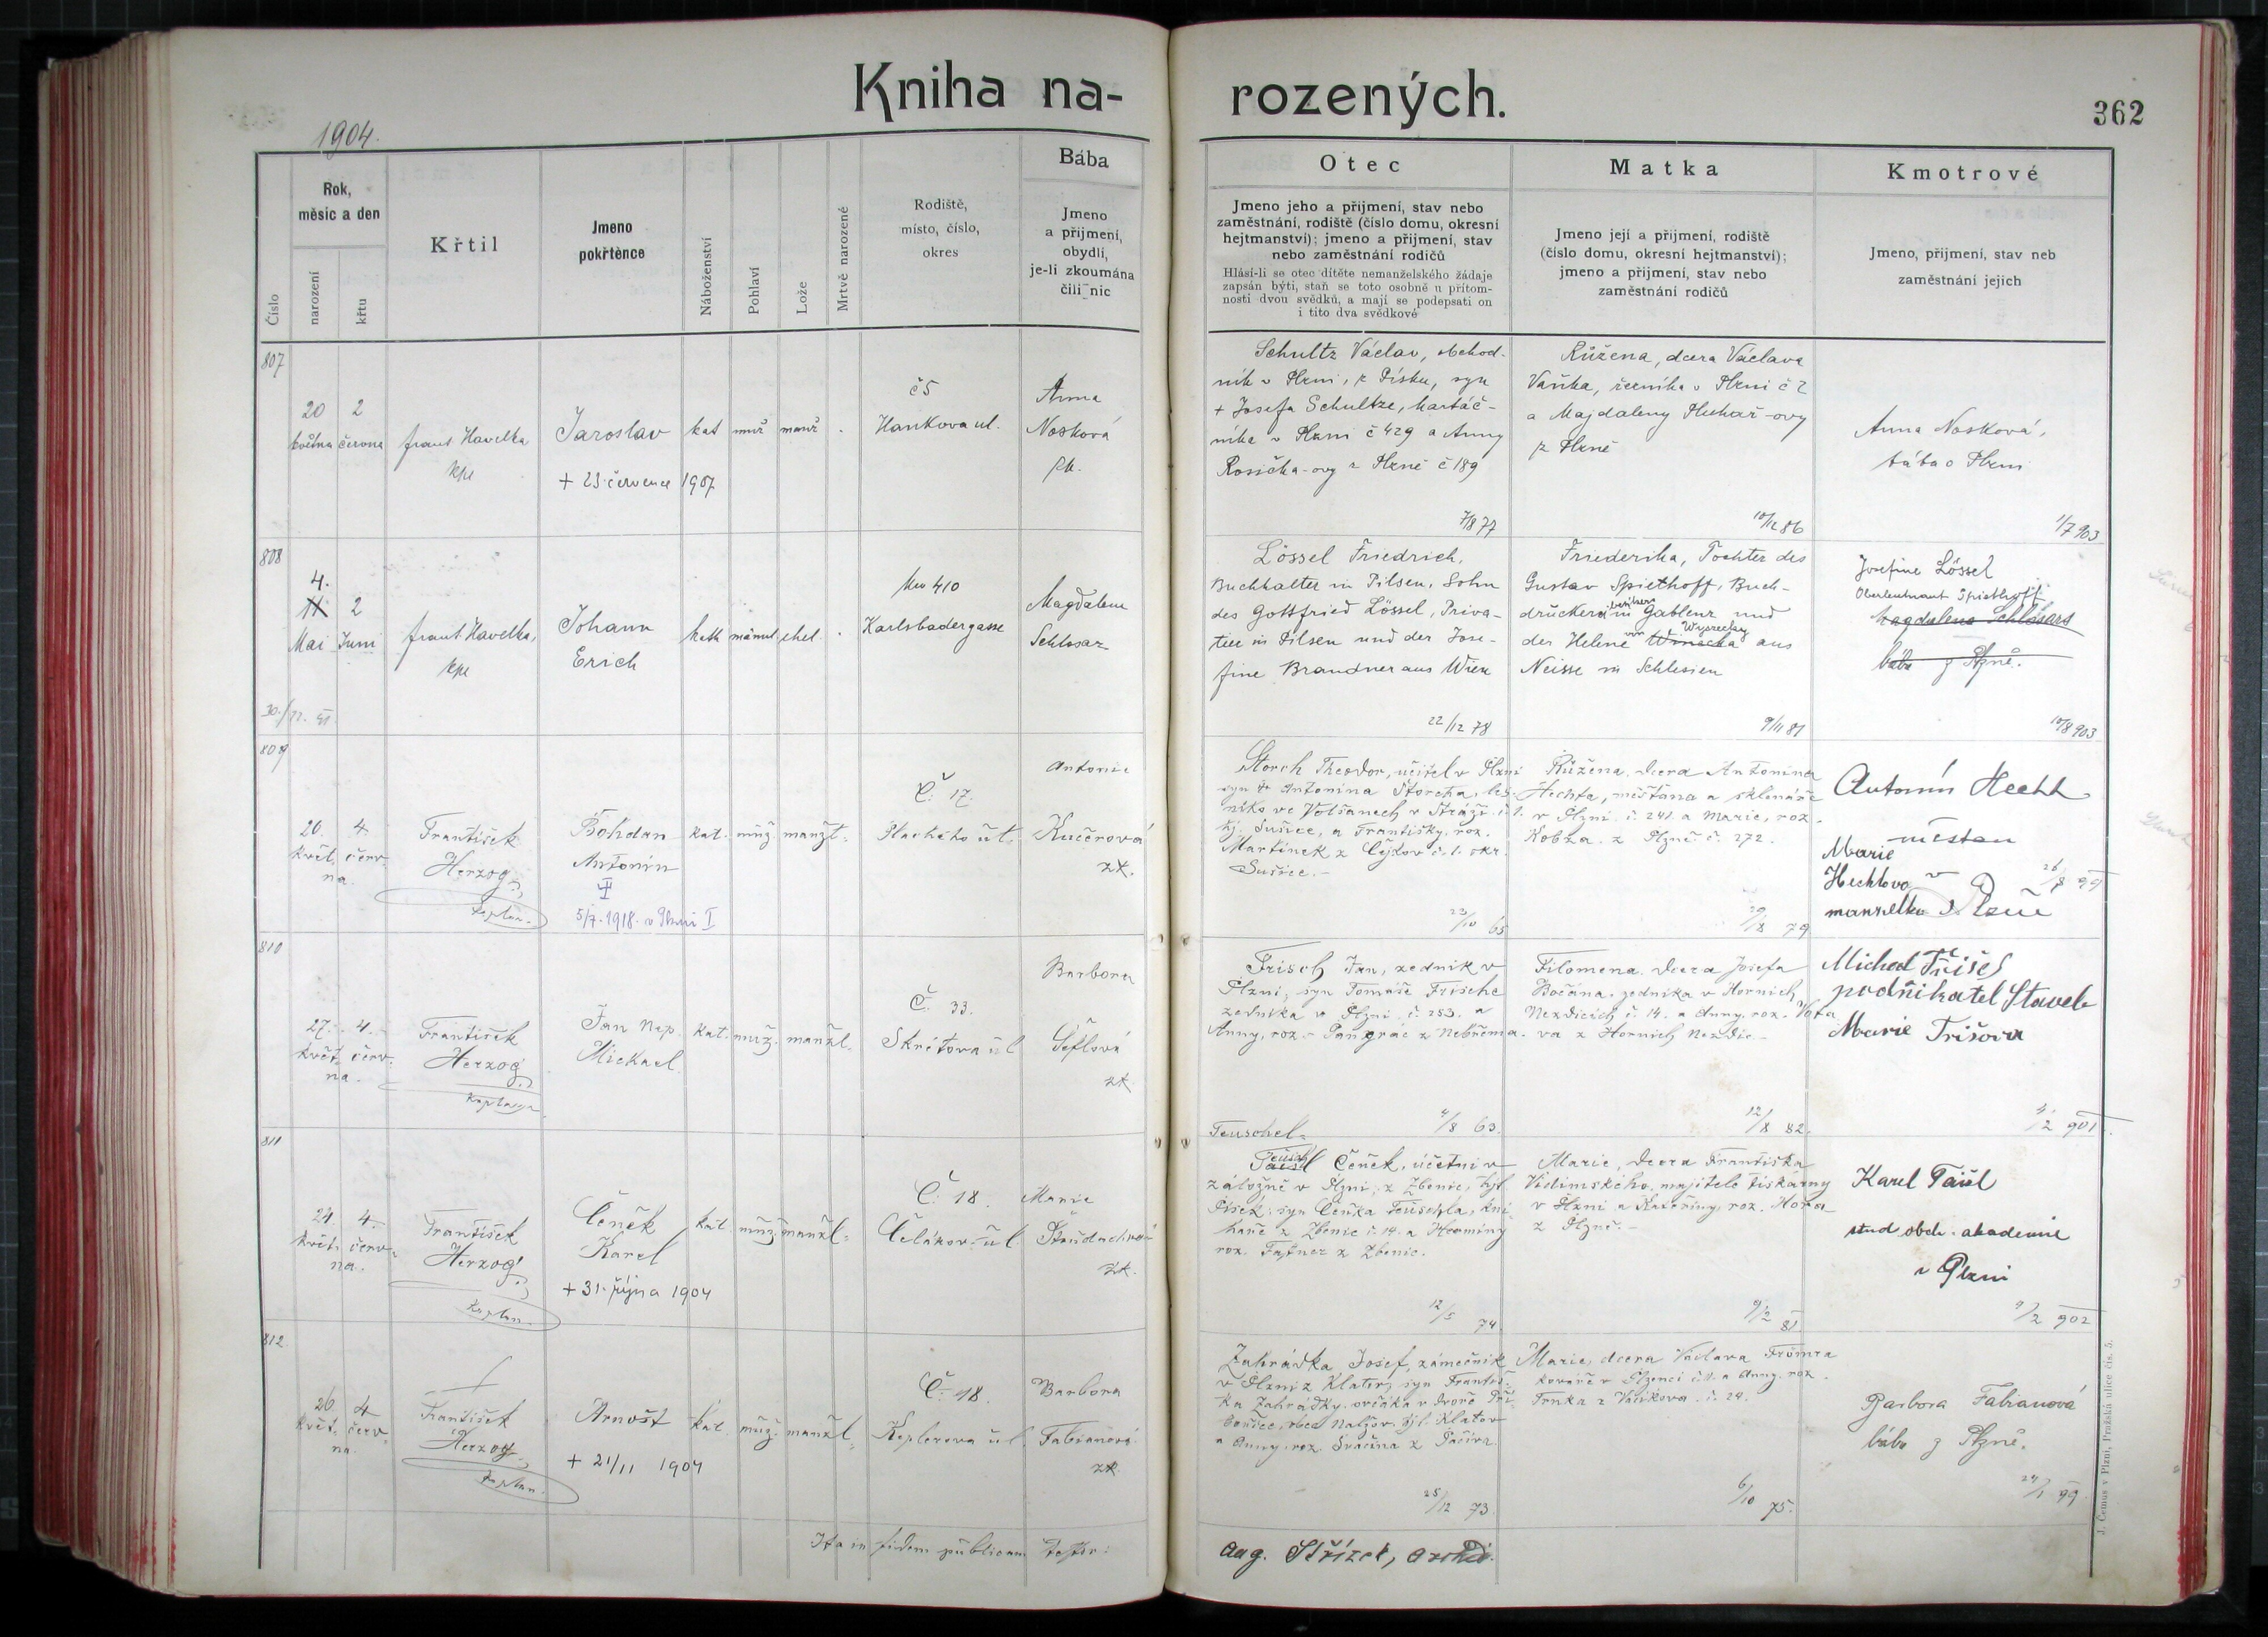 Kniha na-
rozených.
362
1904.
Rok,
měsíc a den
Křtil
Jmeno
pokřtěnce
Náboženství
Pohlaví
Lože
Mrtvě narozené
Rodiště,
místo, číslo,
okres
Bába
Jmeno
a příjmení,
obydlí,
je-li zkoumána
čili nic
Číslo
narození
křtu
Otec
Jmeno jeho a příjmení, stav nebo
zaměstnání, rodiště (číslo domu, okresní
hejtmanství); jmeno a příjmení, stav
nebo zaměstnání rodičů
Hlásí-li se otec dítěte nemanželského žádaje
zapsán býti, staň se toto osobně u přítom-
nosti dvou svědků, a mají se podepsati on
i tito dva svědkové
Matka
Jmeno její a příjmení, rodiště
(číslo domu, okresní hejtmanství);
jmeno a příjmení, stav nebo
zaměstnání rodičů
Kmotrové
Jmeno, příjmení, stav neb
zaměstnání jejich
807
20 2
května června
frant Havelka
kpl
Jaroslav
+ 23. července 1907
kat muž manž .
č 5
Hankova ul.
Anna
Nosková
Schultz Václav, obchod-
ník v Plzni, z Písku, syn
+ Josefa Schultze, kartáč-
níka v Plzni č 429 a Anny
Rosička-ovy z Plzně č 189
7/8 77
Růžena, dcera Václava
Vaňka, řezníka v Plzni č 2
a Majdaleny Pluhař-ovy
z Plzně
10/12 86
Anna Nosková,
bába v Plzni
1/7 903
808
4.
11 2
Mai Juni
frant Havelka,
kpl
Johann
Erich
kath männl ehel .
Nro 410
Karlsbadergasse
Magdalena
Schlosar
Lössel Friedrich,
Buchhalter in Pilsen, Sohn
des Gottfried Lössel, Priva-
tier in Pilsen und der Jose-
fine Brandner aus Wien
22/12 78
Friederika, Tochter des
Gustav Spiethoff, Buch-
druckereibesitzers in Gablenz und
der Helene von aus
Neisse in Schlesien
9/11 81
Josefine Lössel
Oberleutnant Spiethoff
Magdalena Schlosars
bába z Plzně.
10/8 903
809
20. 4.
květ. červ.
na.
František
Herzog
kaplan.
Bohdan
Antonín
5/7. 1918. v Plzni I
kat. muž. manžl.
Č. 17.
Plachého ul.
Antonie
Kučerová
zk.
Storch Theodor, učitel v Plzni
syn + Antonína Štorcha, les-
níka ve Volšanech v Stráži č. 1.
hj. Sušice, a Františky, roz.
Martínek z Čejkov č. 1. okr.
Sušice.-
23/10 65
Růžena, dcera Antonína
Hechta, měšťana a sklenáře
v Plzni č. 241. a Marie, roz.
Kobza z Plzně č. 272.
29/8 79
Antonín Hecht
měštan
Marie
Hechtova
manželka v Plzni
26/8 99
810
27. 4.
květ. červ.
na.
František
Herzog
kaplan
Jan Nep.
Michael.
kat. muž. manžl.
Č. 33.
Skrétova ul
Barbora
Šeflová
zk.
Frisch Jan, zedník v
Plzni, syn Tomáše Frische
zedníka v Plzni č. 253. a
Anny, roz. Pangrác z Nebřema.
4/8 63.
Filomena dcera Josefa
Bočána, zedníka v Horních
Nezdicích č. 14. a Anny, roz. Vota
va z Horních Nezdic.-
12/8 82.
Michal Tříšel
podnikatel Staveb
Marie Trišova
4/2 901
811
24. 4.
květ. červ.
na.
František
Herzog
kaplan.
Čeněk
Karel
+ 31. října 1904
kat muž. manžl.
Č. 18.
Čelakov. ul.
Marie
zk.
Teuschel
Teuschl Čeněk, účetní v
záložně v Plzni, z Zbenic, hjt.
Písek, syn Čeňka Teuschla, kni-
haře z Zbenic č. 14. a Hermíny
roz. Fajtner z Zbenic.
12/5 74.
Marie, dcera Františka
Vidimského, majitele tiskárny
v Plzni a Kateřiny roz. Hora
z Plzně.-
9/2 81
Karel Taišl
stud obch. akademie
v Plzni
9/2 902
812.
26 4
květ. červ.
na.
František
Herzog
kaplan.
Arnošt
+ 21/11 1904
kat. muž. manžl.
Č. 18.
Keplerova ul.
Barbora
Fabianová
zk.
Zahrádka Josef, zámečník
v Plzni z Klatov, syn Františ-
ka Zahrádky, ovčáka v dvoře
obec Nalžov, hjt. Klatov
a Anny, roz. Svačina z Pačina.
25/12 73.
Marie, dcera Václava
kováře v Plzenci č. 1. a Anny, roz.
Trnka z Vačíkova č. 24.
6/10 75.
Barbora Fabianová
bába z Plzně.
24/1 99
Ita in fidem publicam testor:
Aug. Střízek, archid.
J. Černus v Plzni, Pražská ulice čís. 5.